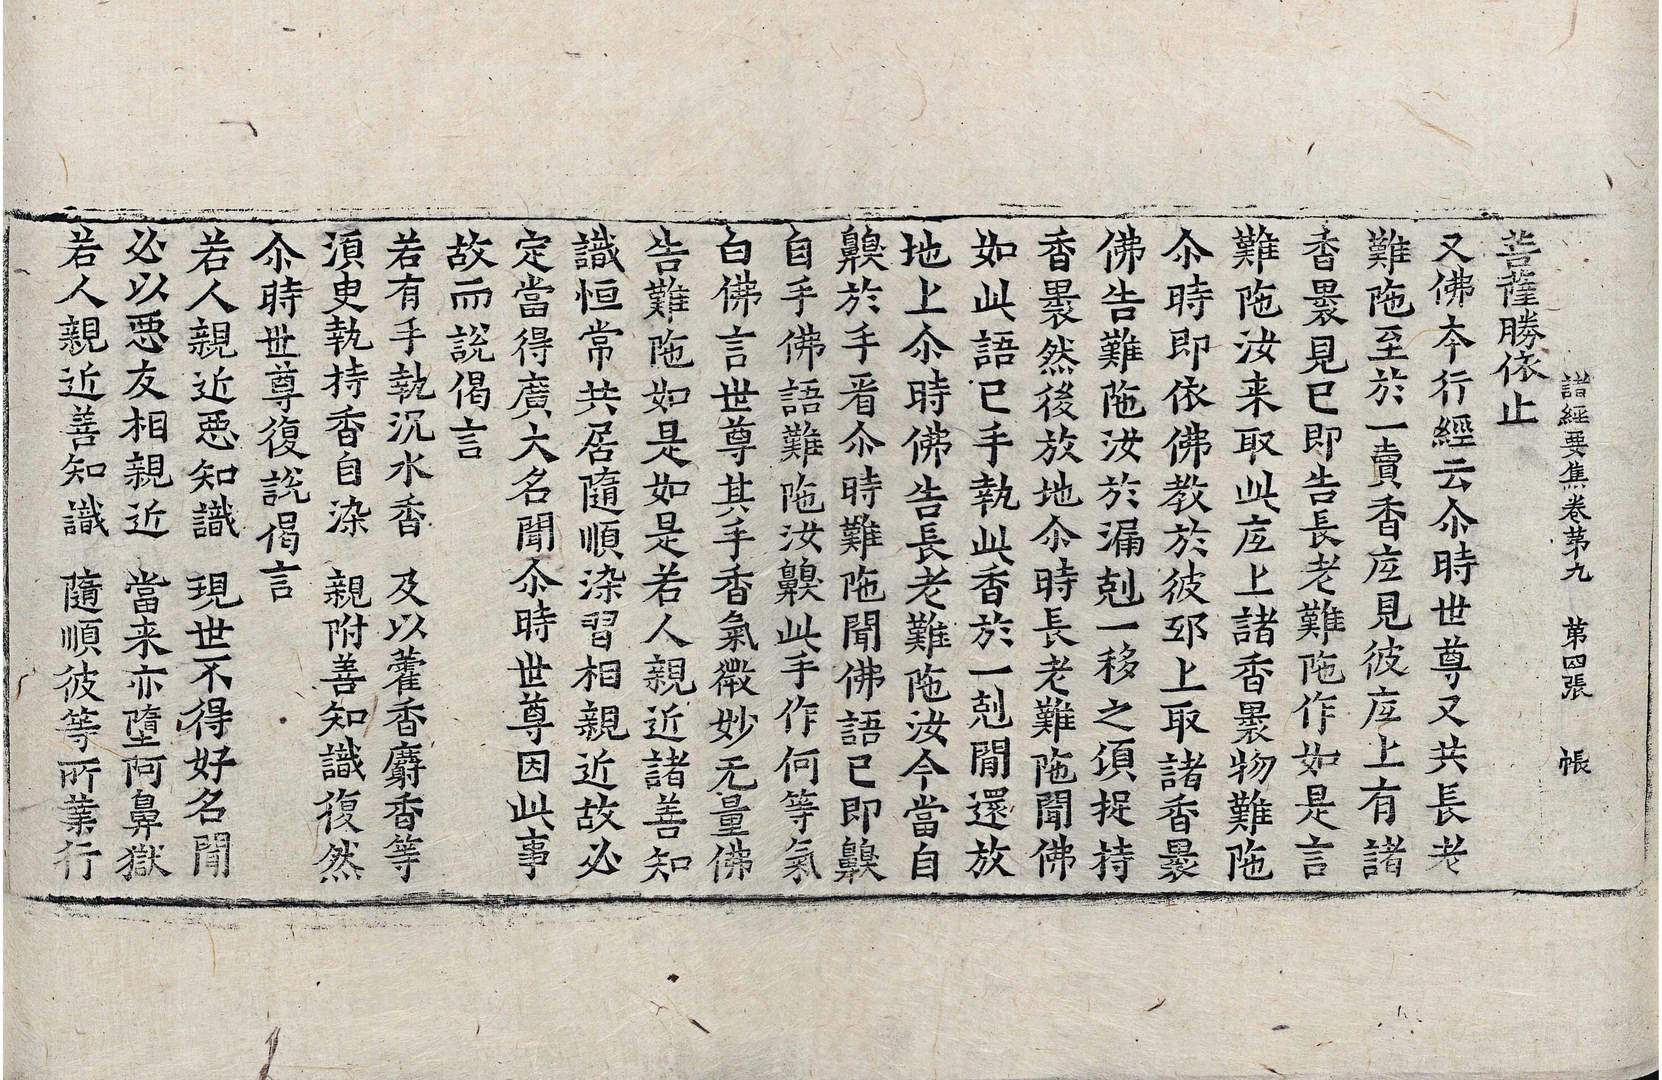 諸經要集卷第九 第四張 帳
菩薩勝依止
又佛本行經云尒時世尊又共長老
難陁至於一賣香店見彼店上有諸
香褁見已即告長老難陁作如是言
難陁汝来取此店上諸香褁物難陁
尒時即依佛教於彼邸上取諸香褁
佛告難陁汝於漏剋一移之湏捉持
香褁然後放地尒時長老難陁聞佛
如此語已手執此香於一剋閒還放
地上尒時佛告長老難陁汝今當自
齅於手㸔尒時難陁聞佛語已即齅
自手佛語難陁汝齅此手作何等氣
白佛言世尊其手香氣微妙无量佛
告難陁如是如是若人親近諸善知
識恒常共居隨順染習相親近故必
定當得廣大名聞尒時世尊因此事
故而說偈言
若有手執沉水香 及以藿香麝香等
湏臾執持香自染 親附善知識復然
尒時世尊復說偈言
若人親近惡知識 現世不得好名聞
必以惡友相親近 當来亦墮阿鼻獄
若人親近善知識 隨順彼等所業行